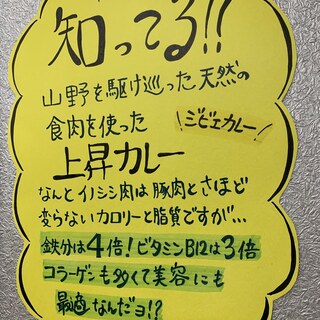 知ってる!!
山野を駆け巡った天然の
食肉を使った
\ジビエカレー/
上昇カレー
なんとイノシシ肉は豚肉とさほど
変らないカロリーと脂質ですが…
鉄分は4倍!ビタミンB12は3倍
コラーゲンも多くて美容にも
最適なんだヨ!?